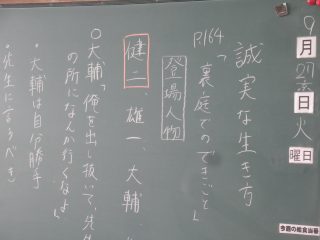 9月27日火曜日
誠実な生き方
P.164「裏庭でのできごと」
登場人物
健二、雄一、大輔、
○大輔「俺を出し抜いて、先生
の所になんか行くなよ」
・大輔は自分勝手
・先生に言うべき
今週の給食当番